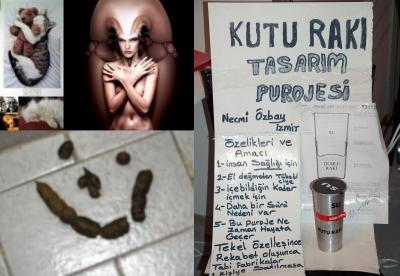 KUTU RAKI
TASARIM
PUROJESİ
Necmi Özbay
İzmit
Özelikleri ve
Amacı
1- insan Sağlığı için
2- El değmeden Tüketi
ciye
3- içebildiğin Kadar
içmek için
4- Daha bir Sürü
Nedeni var
5- Bu Puroje Ne
Zaman Hayata
Geçer
Tekel Özelleşince
Rekabet oluşunca
Tabi Fabrikalar
SU
DUBLE
RAKI
SU
KUTU RAKI